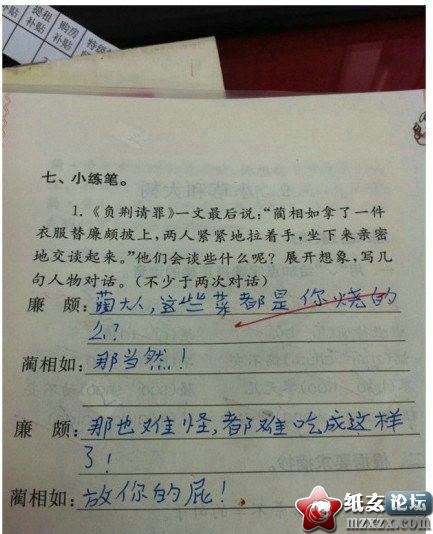 特租
补贴
购房
补贴
特级
七、小练笔。
1.《负荆请罪》一文最后说:“蔺相如拿了一件
衣服替廉颇披上,两人紧紧地拉着手,坐下来亲密
地交谈起来。”他们会谈些什么呢?展开想象,写几
句人物对话。(不少于两次对话)
廉 颇:蔺大人,这些菜都是你烧的
么?
蔺相如:那当然!
廉 颇:那也难怪,都难吃成这样
了!
蔺相如:放你的屁!
纸玄论坛
www.mzxzx.com